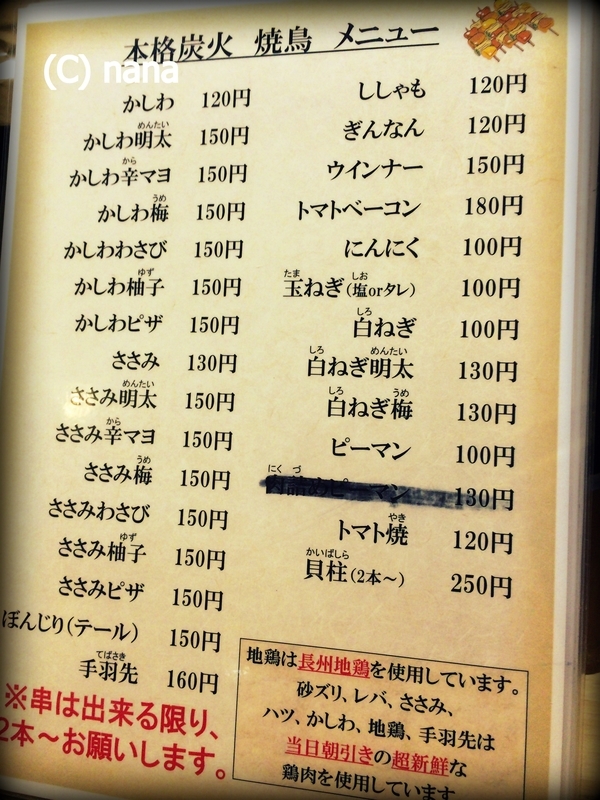 本格炭火 焼鳥 メニュー
(C) nana
かしわ 120円
かしわ明太 150円
めんたい
かしわ辛マヨ 150円
から
かしわ梅 150円
うめ
かしわわさび 150円
かしわ柚子 150円
ゆず
かしわピザ 150円
ささみ 130円
ささみ明太 150円
めんたい
ささみ辛マヨ 150円
から
ささみ梅 150円
うめ
ささみわさび 150円
ささみ柚子 150円
ゆず
ささみピザ 150円
ぼんじり(テール) 150円
手羽先 160円
てばさき
※串は出来る限り、
2本~お願いします。
ししゃも 120円
ぎんなん 120円
ウインナー 150円
トマトベーコン 180円
にんにく 100円
玉ねぎ(塩orタレ) 100円
たま しお
白ねぎ 100円
しろ
白ねぎ明太 130円
しろ めんたい
白ねぎ梅 130円
しろ うめ
ピーマン 100円
肉詰めピーマン 130円
にく づ
トマト焼 120円
やき
貝柱(2本~) 250円
かいばしら
地鶏は長州地鶏を使用しています。
砂ズリ、レバ、ささみ、
ハツ、かしわ、地鶏、手羽先は
当日朝引きの超新鮮な
鶏肉を使用しています